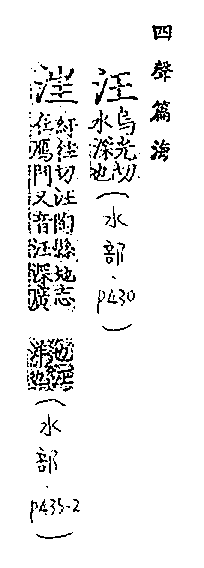 四聲篇海
汪烏光切水深也(水部.p430)
紆往切汪陶縣地志在鴈門又音汪深廣(水部.p435-2)